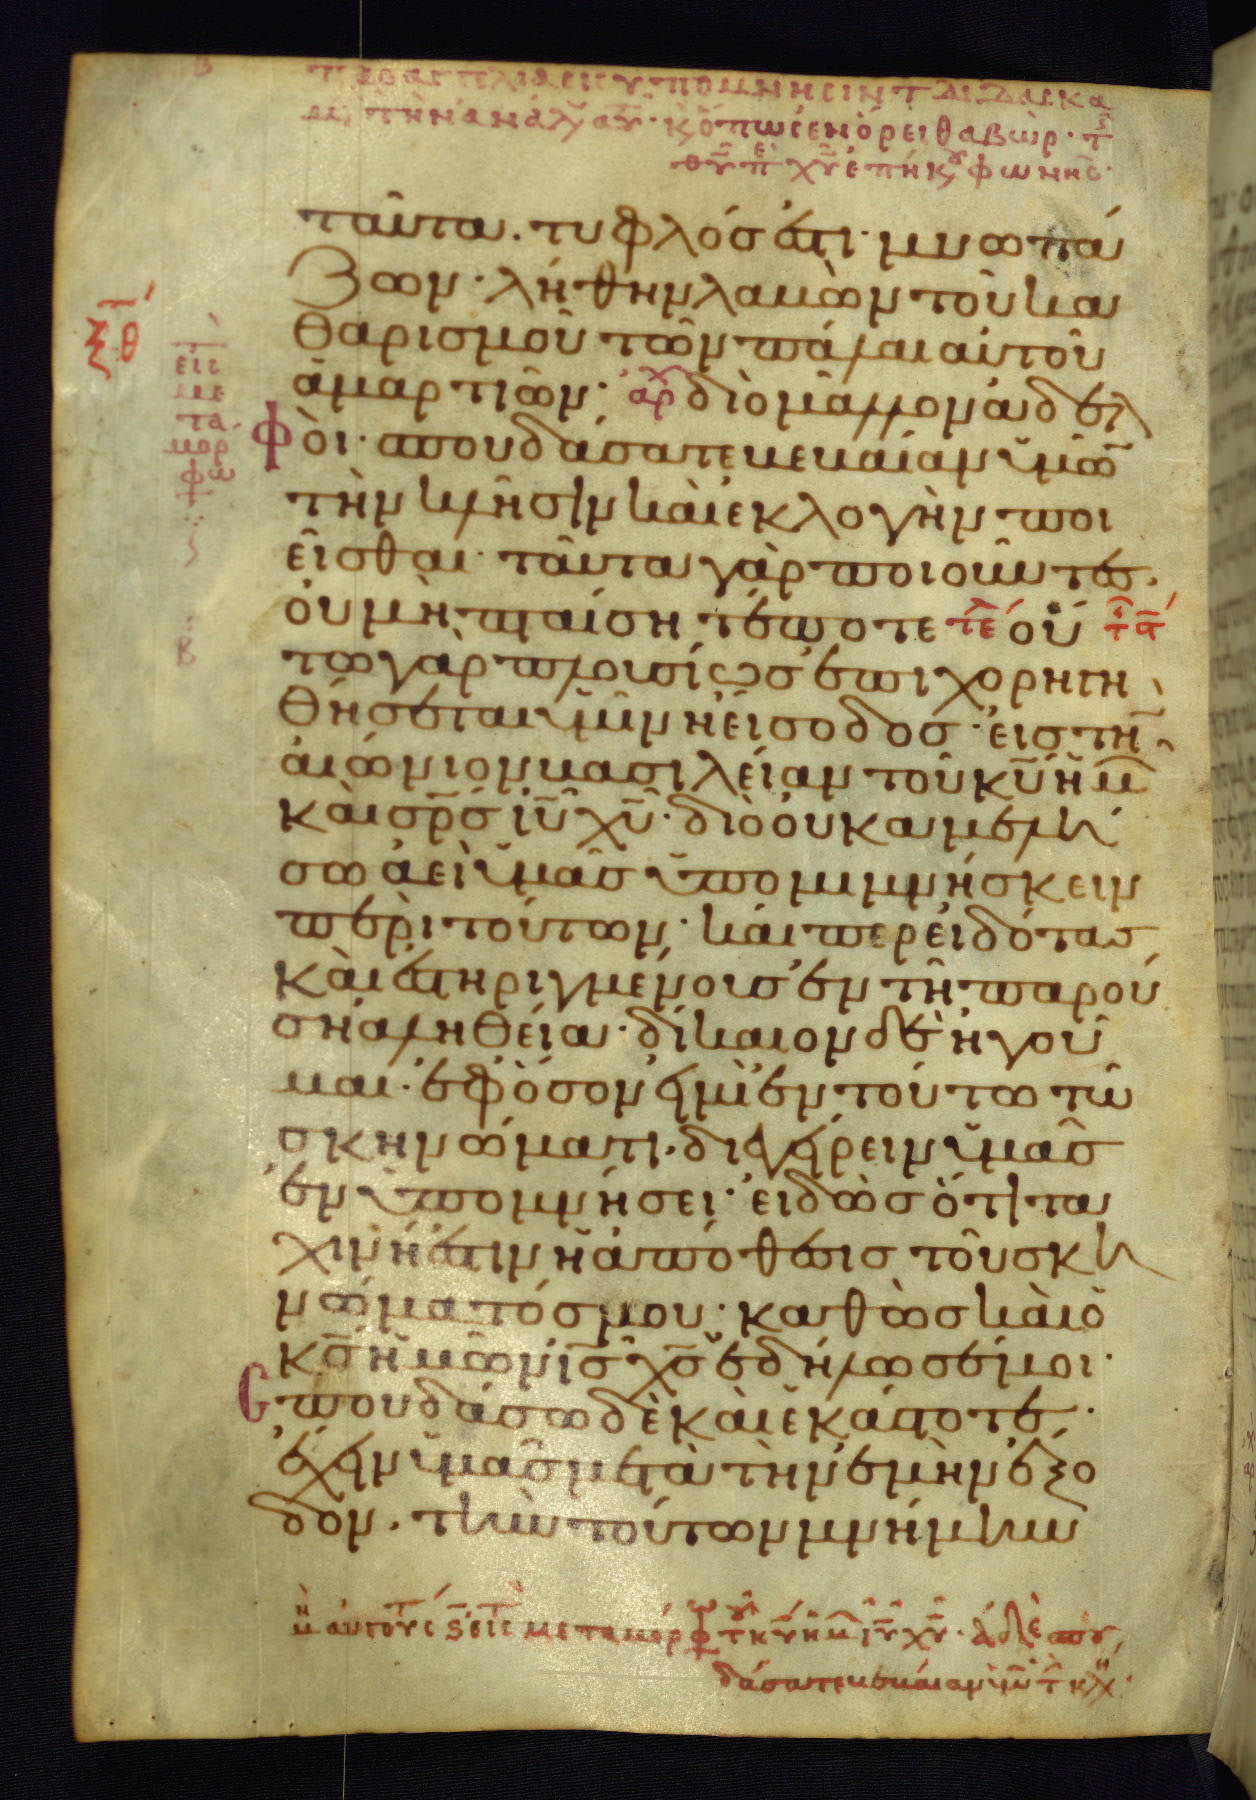 ταῦτα. τυφλός ἐστι· μυωπά
ζων· λήθην λαβὼν τοῦ κα
θαρισμοῦ τῶν πάλαι αὐτοῦ
ἁμαρτιῶν· ἀρχ διὸ μᾶλλον ἀδελ
φὸι· σπουδάσατε βεβαίαν ὑμῶ̅
τὴν κλῆσιν κὰι ἐκλογὴν ποι
εῖσθαι· ταῦτα γὰρ ποιοῦντες.
οὐ μὴ πταίσητέ ποτε τέλ οὕ
τω γὰρ πλουσίως ἐπιχορηγη
θήσεται ὑμῖν ἡ εἴσοδος· εἰς τὴ̅
αἰώνιον βασιλείαν τοῦ κυ̅ ἡμ
κὰι σρ̅ς ιυ̅ χυ̅· διὸ οὐκ ἀμελή
σω ἀεὶ ὑμᾶς ὑπομιμνήσκειν
περὶ τούτων· κάιπερ εἰδότας
κὰι ἐστηριγμένους ἐν τῆ παρού
ση ἀληθεία· δίκαιον δὲ ἡγοῦ
μαι· ἐφ ὅσον εἰμὶ ἐν τούτω τῶ
σκηνώματι· διεγείρειν ὑμᾶς
ἐν ὑπομνήσει· εἰδὼς ὅτι τα
χινή ἐστιν ἡ ἀπόθεσις τοῦ σκη
νώματός μου· καθὼς κὰι ὁ
κς̅ ἡμῶν ις̅ χς̅ ἐδήλωσέ μοι·
Σπουδάσω δὲ κὰι ἑκάστοτε·
ἔχειν ὑμᾶς μετὰ τὴν ἐμὴν ἔξο
δον. τὴν τούτων μνήμην